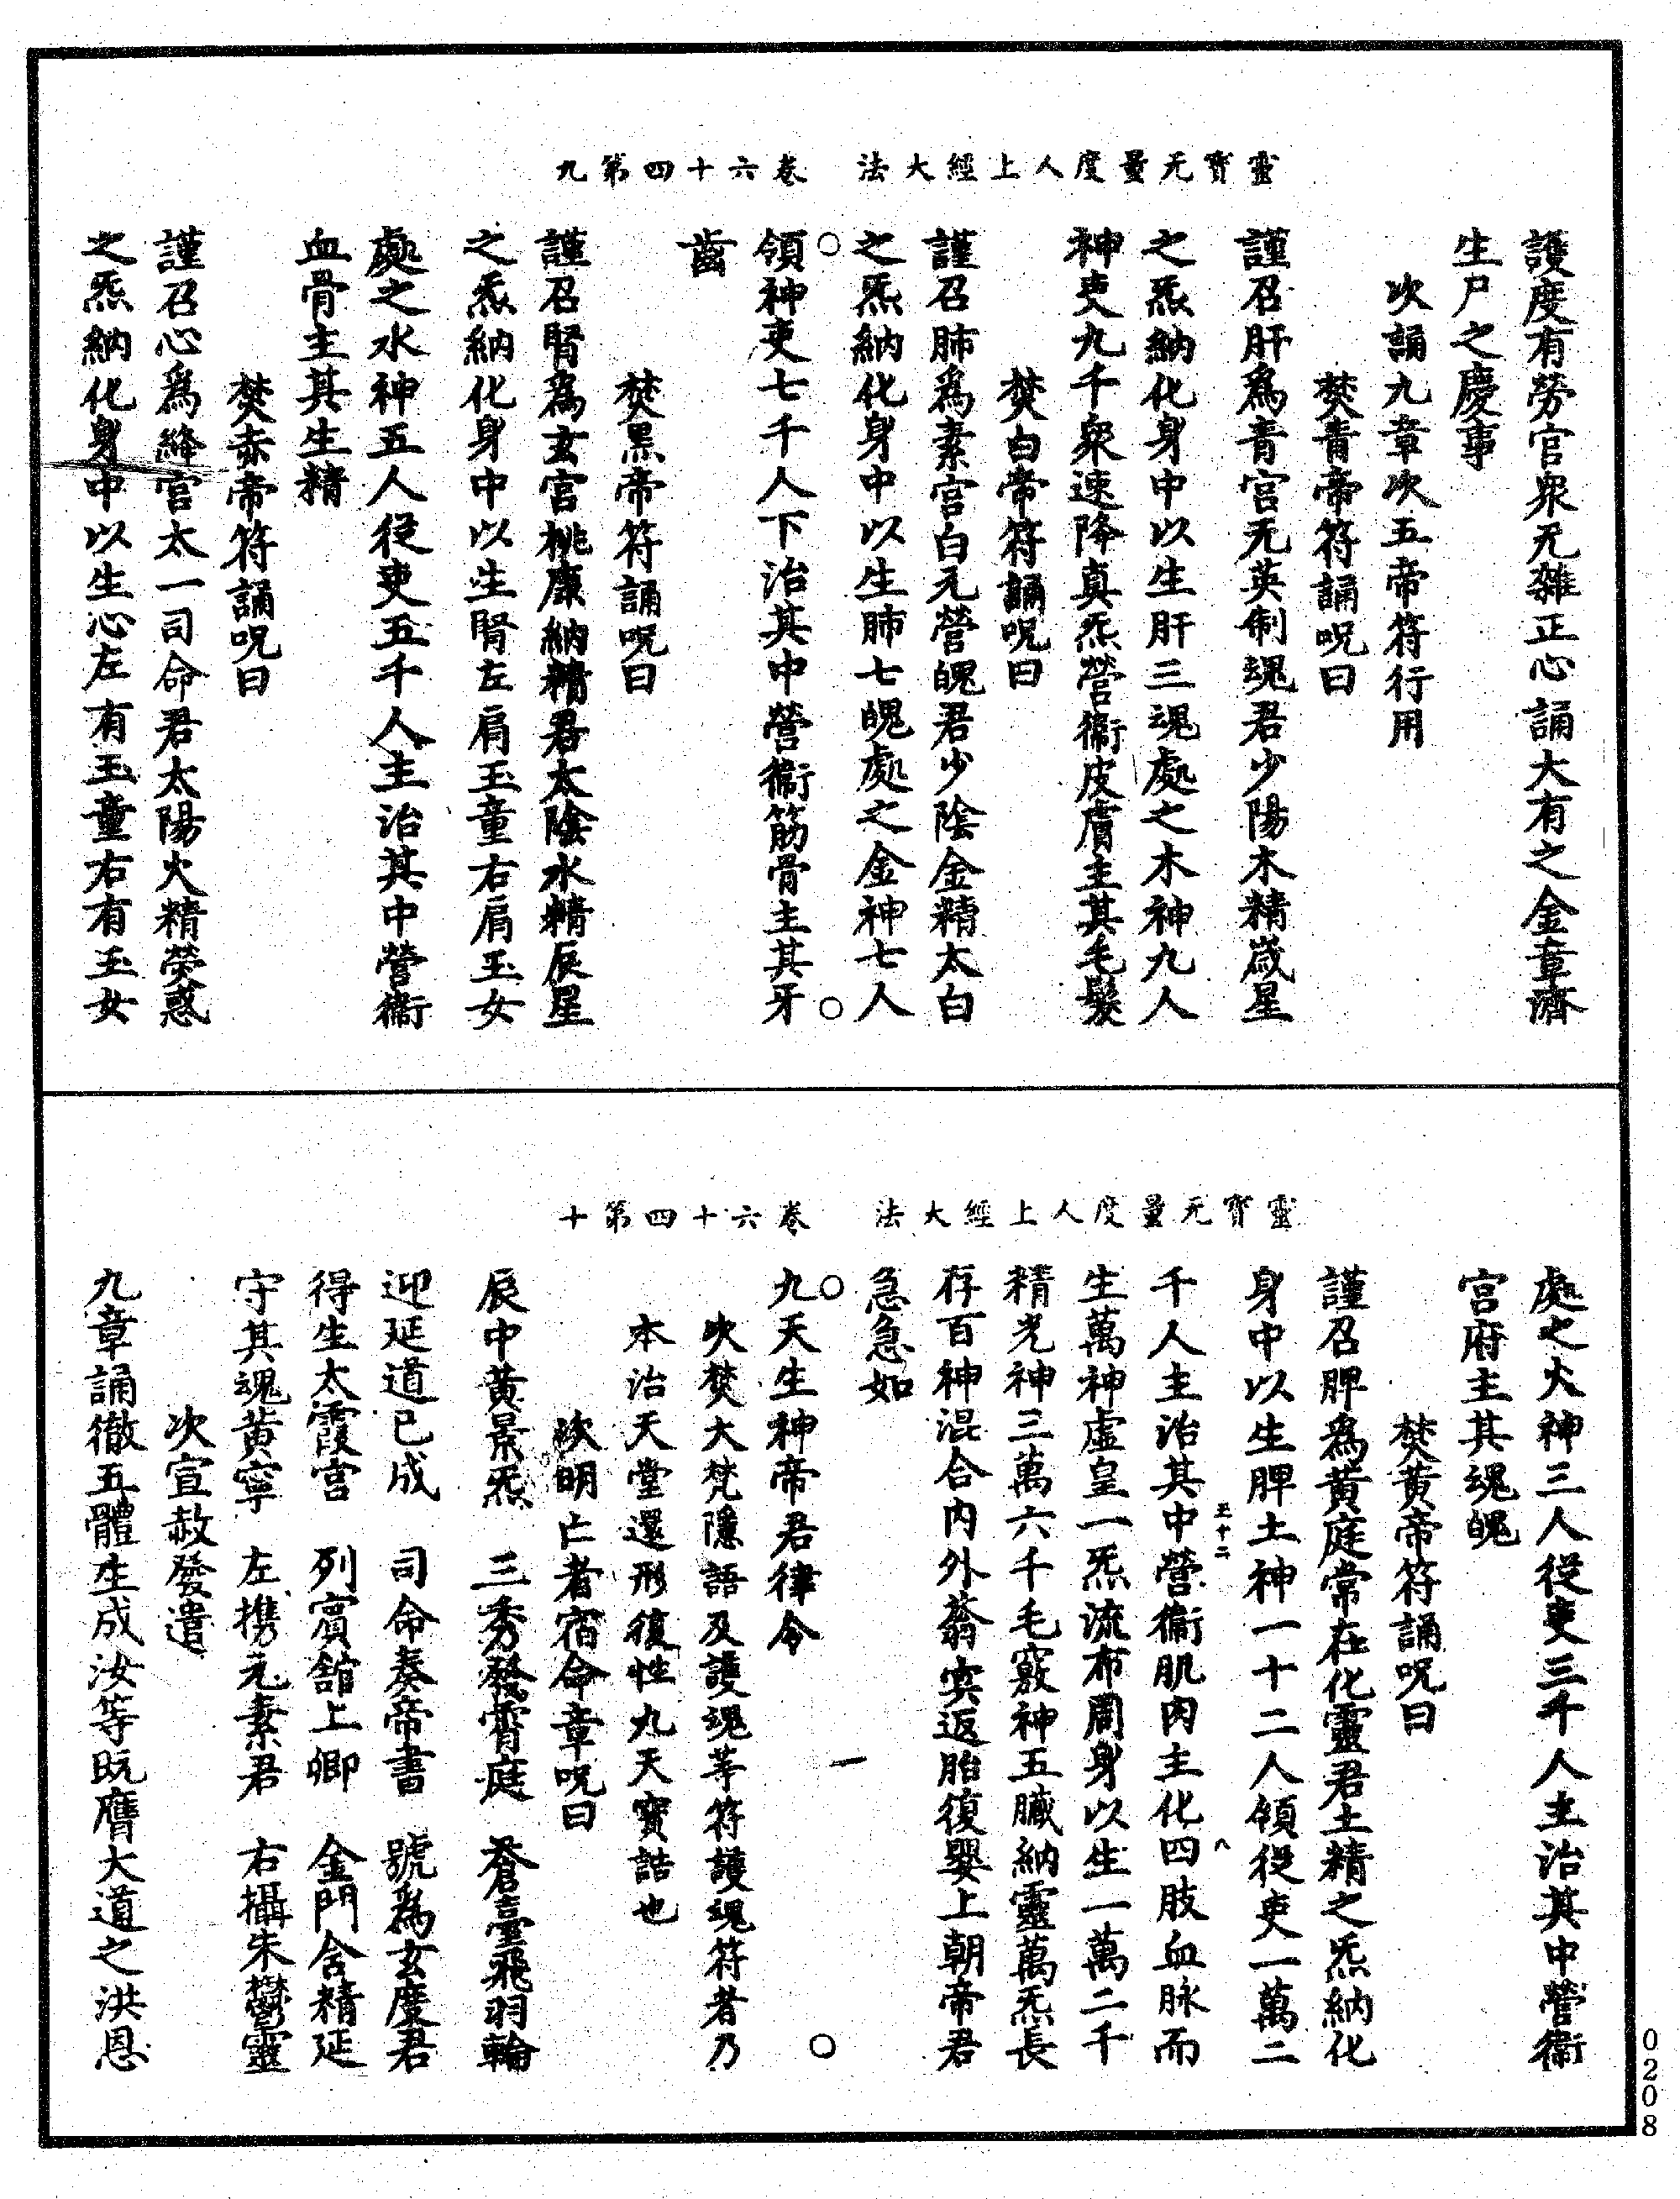 靈寶无量度人上經大法 卷六十四第九
護度有勞官衆无雜正心誦大有之金章濟
生尸之慶事
次誦九章次五帝符行用
焚青帝符誦呪曰
謹召肝爲青宫无英制魂君少陽木精歲星
之炁納化身中以生肝三魂處之木神九人
神吏九千衆速降真炁營衞皮膚主其毛髮
焚白帝符誦呪曰
謹召肺爲素宫白元營魄君少隂金精太白
之炁納化身中以生肺七魄處之金神七人
領神吏七千人下治其中營衞筋骨主其牙
齒
焚黑帝符誦呪曰
謹召腎爲玄宫桃康納精君太隂水精辰星
之炁納化身中以生腎左肩玉童右肩玉女
處之水神五人從吏五千人主治其中營衞
血骨主其生精
焚赤帝符誦呪曰
謹召心爲絳宫太一司命君太陽火精熒惑
之炁納化身中以生心左有玉童右有玉女
靈寶无量度人上經大法 卷六十四第十
處之火神三人從吏三千人主治其中營衞
宫府主其魂魄
焚黄帝符誦呪曰
謹召脾爲黄庭常在化靈君土精之炁納化
身中以生脾土神一十二人領從吏一萬二
千人主治其中營衞肌肉主化四肢血脉而
生萬神虛皇一炁流布周身以生一萬二千
精光神三萬六千毛竅神五臟納靈萬炁長
存百神混合内外蓊㝠返胎復嬰上朝帝君
急急如
九天生神帝君律令
次焚大梵隱語及護魂等符護魂符者乃
本治天堂還形復性九天寳誥也
次明亡者宿命章呪曰
辰中黄景炁 三秀發霄庭 蒼臺飛羽輪
迎延道已成 司命奏帝書 號爲玄慶君
得生太霞宫 列賔舘上卿 金門含精延
守其魂黄寧 左携元素君 右攝朱欝靈
次宣赦發遣
九章誦徹五體生成汝等旣膺大道之洪恩
0208